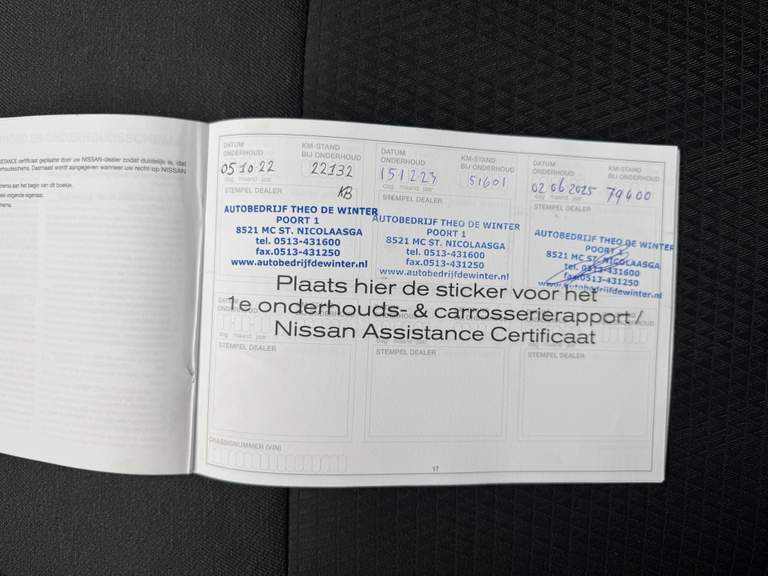 STANCE certificaat geplaatst door uw NISSAN-dealer zodat duidelijk is, dat
DATUM ONDERHOUD
KM-STAND BIJ ONDERHOUD
05 10 22
22132
dag maand jaar
STEMPEL DEALER
KB
AUTOBEDRIJF THEO DE WINTER
POORT 1
8521 MC ST. NICOLAASGA
tel. 0513-431600
fax.0513-431250
www.autobedrijfdewinter.nl
DATUM ONDERHOUD
KM-STAND BIJ ONDERHOUD
15 12 23
51601
dag maand jaar
STEMPEL DEALER
AUTOBEDRIJF THEO DE WINTER
POORT 1
8521 MC ST. NICOLAASGA
tel. 0513-431600
fax.0513-431250
www.autobedrijfdewinter.nl
DATUM ONDERHOUD
KM-STAND BIJ ONDERHOUD
02 06 2025
79400
dag maand jaar
STEMPEL DEALER
AUTOBEDRIJF THEO DE WINTER
POORT 1
8521 MC ST. NICOLAASGA
tel. 0513-431600
fax.0513-431250
www.autobedrijfdewinter.nl
Plaats hier de sticker voor het
1e onderhouds- & carrosserierapport /
Nissan Assistance Certificaat
STEMPEL DEALER
STEMPEL DEALER
STEMPEL DEALER
CHASSISNUMMER (VIN)
17